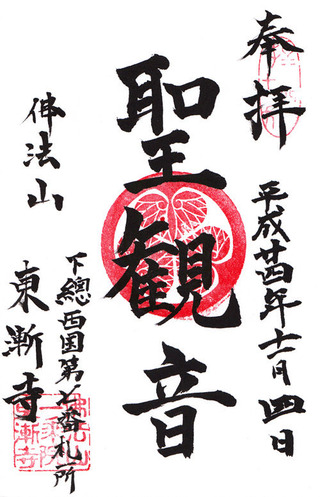 奉拝
平成廿四年十一月四日
聖観音
佛法山
下總西国第七番札所
東漸寺